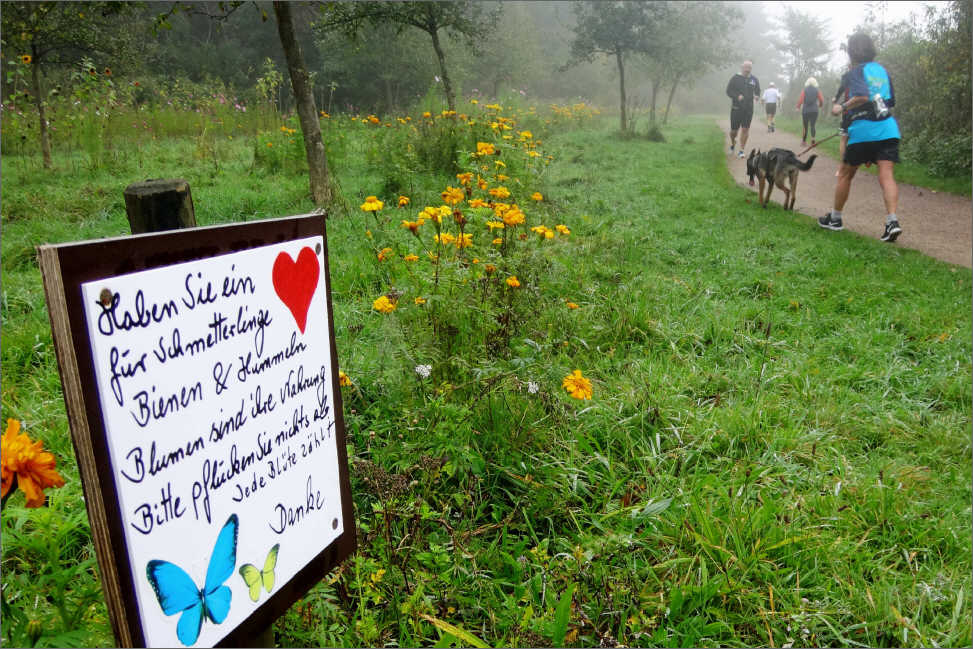 Haben Sie ein
für Schmetterlinge
Bienen & Hummeln
Blumen sind ihre Nahrung
Bitte pflücken Sie nichts ab
Jede Blüte zählt
Danke